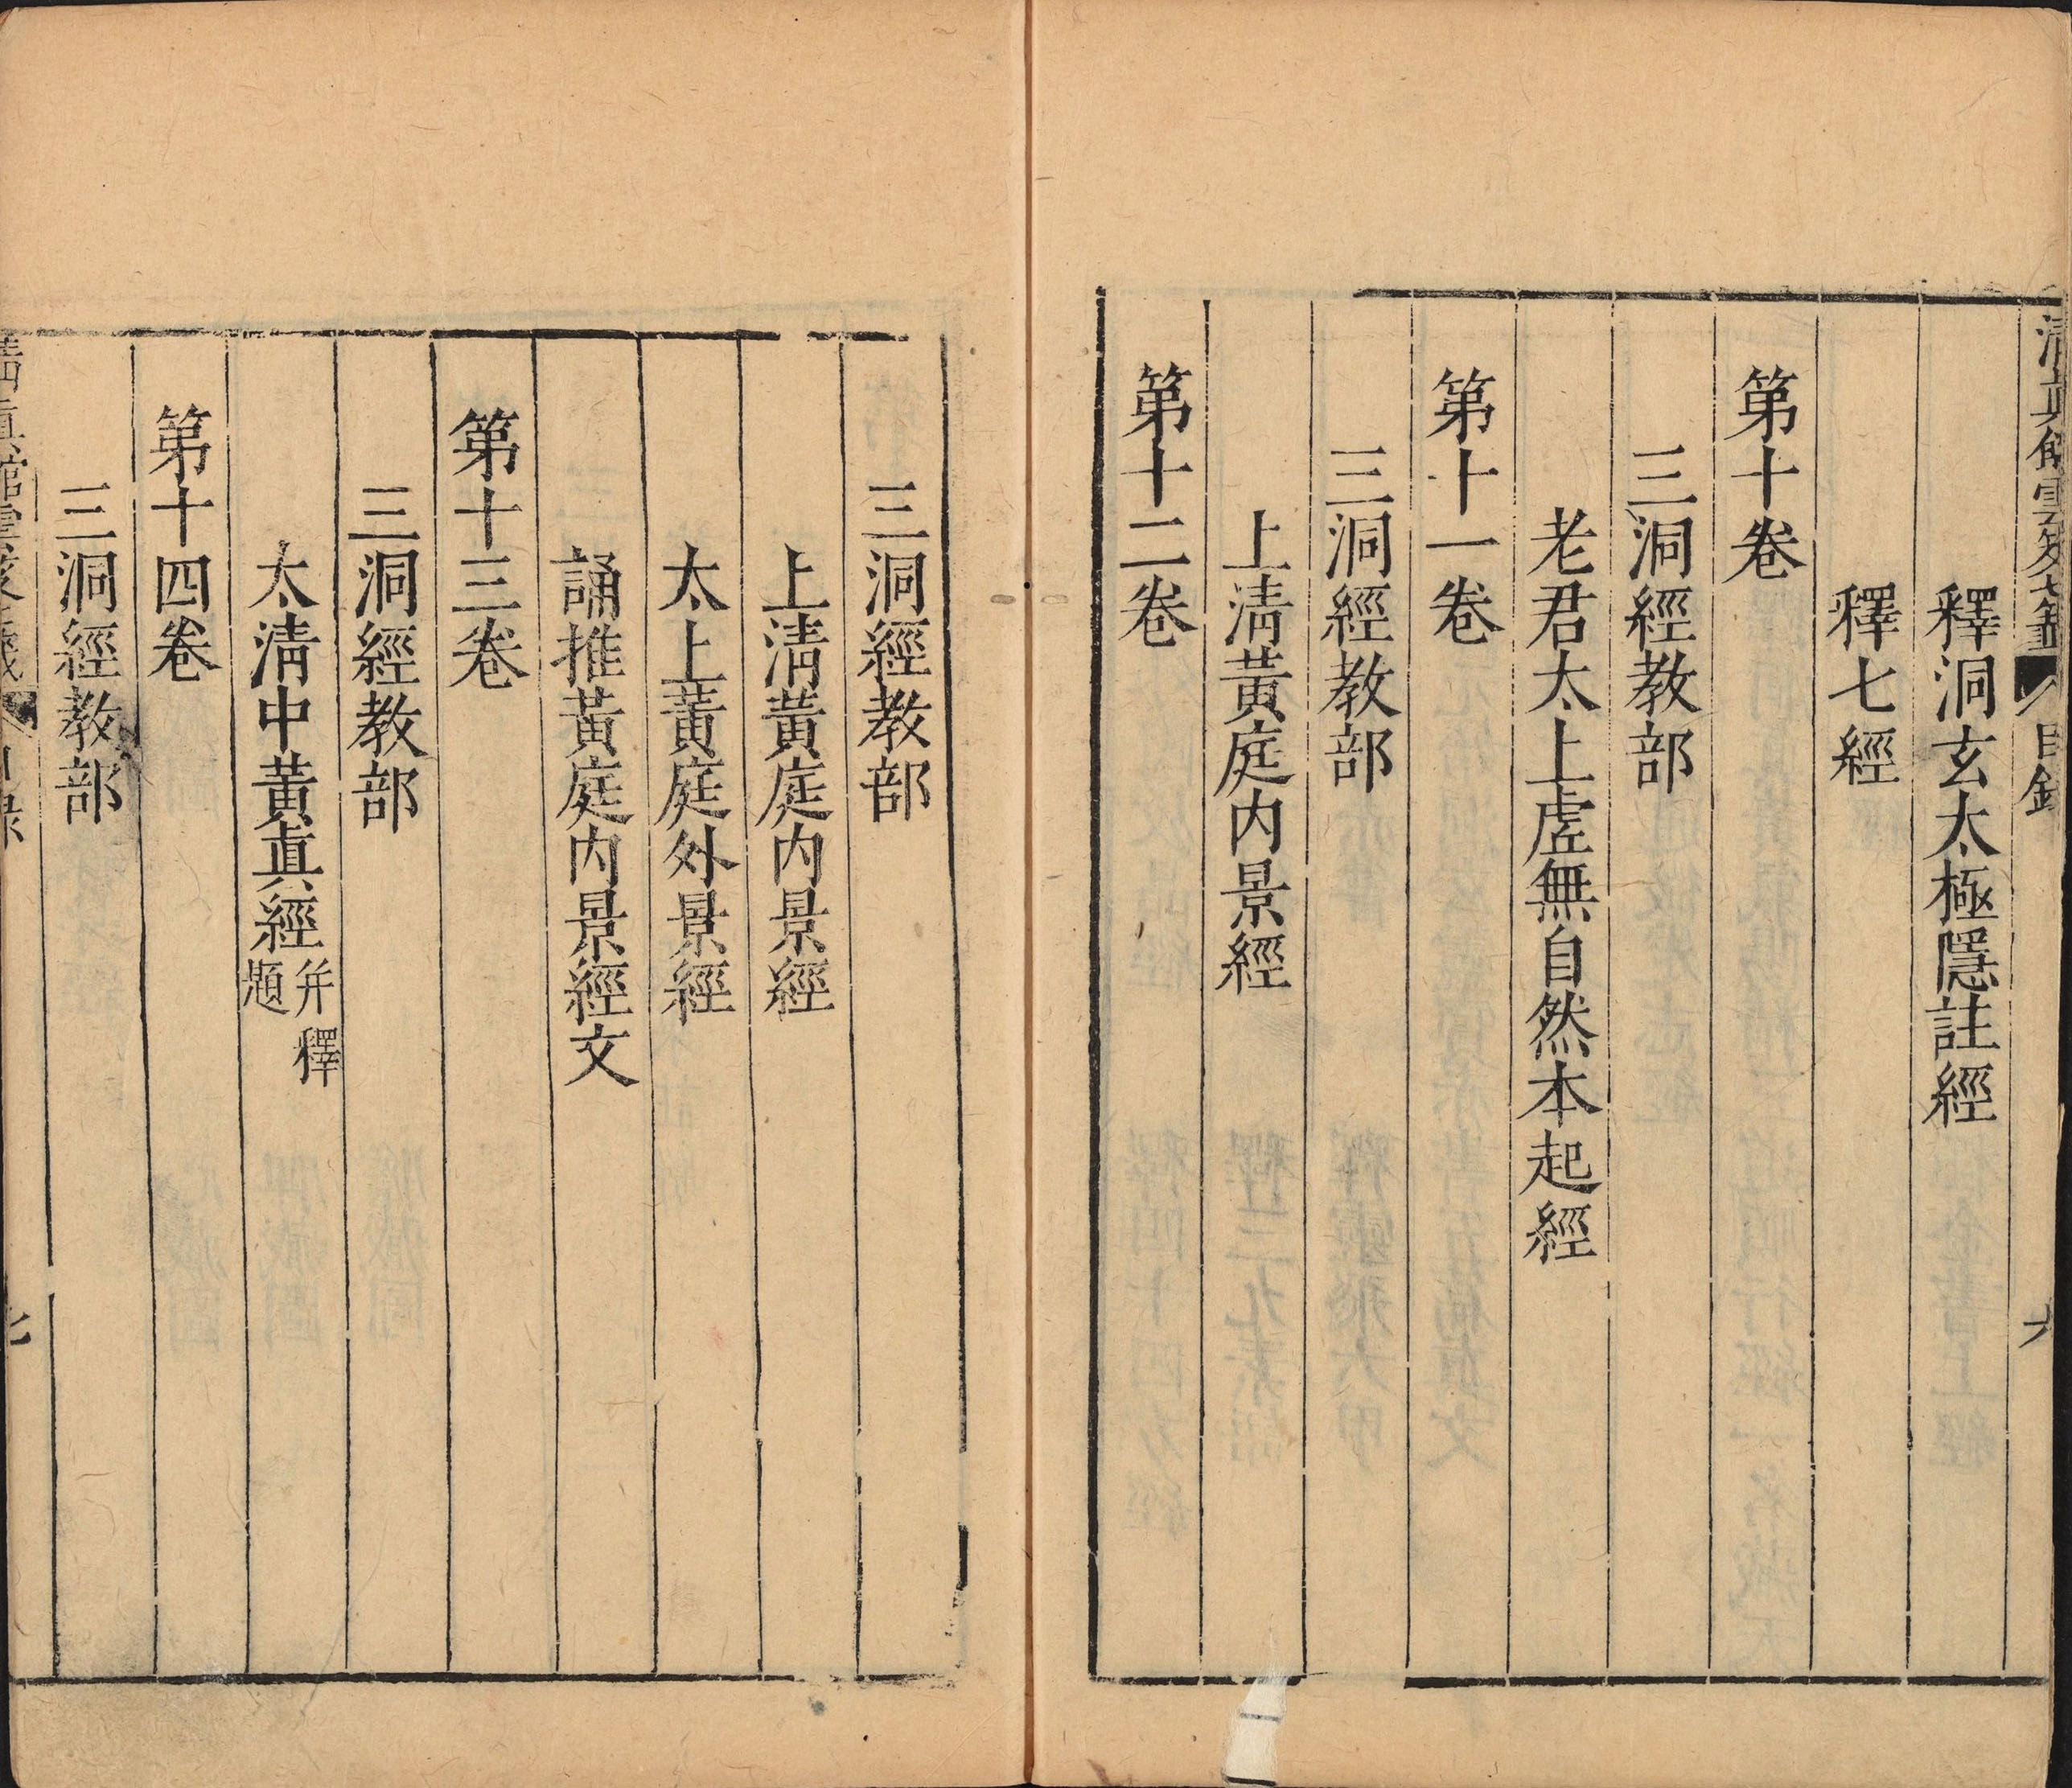 清真館雲笈七籤 目錄 六
釋洞玄太極隱註經
釋七經
第十卷
三洞經教部
老君太上虛無自然本起經
第十一卷
三洞經教部
上淸黃庭内景經
第十二卷
三洞經教部
上淸黃庭内景經
太上黃庭外景經
誦推黃庭内景經文
第十三卷
三洞經教部
太淸中黃眞經并釋題
第十四卷
三洞經教部